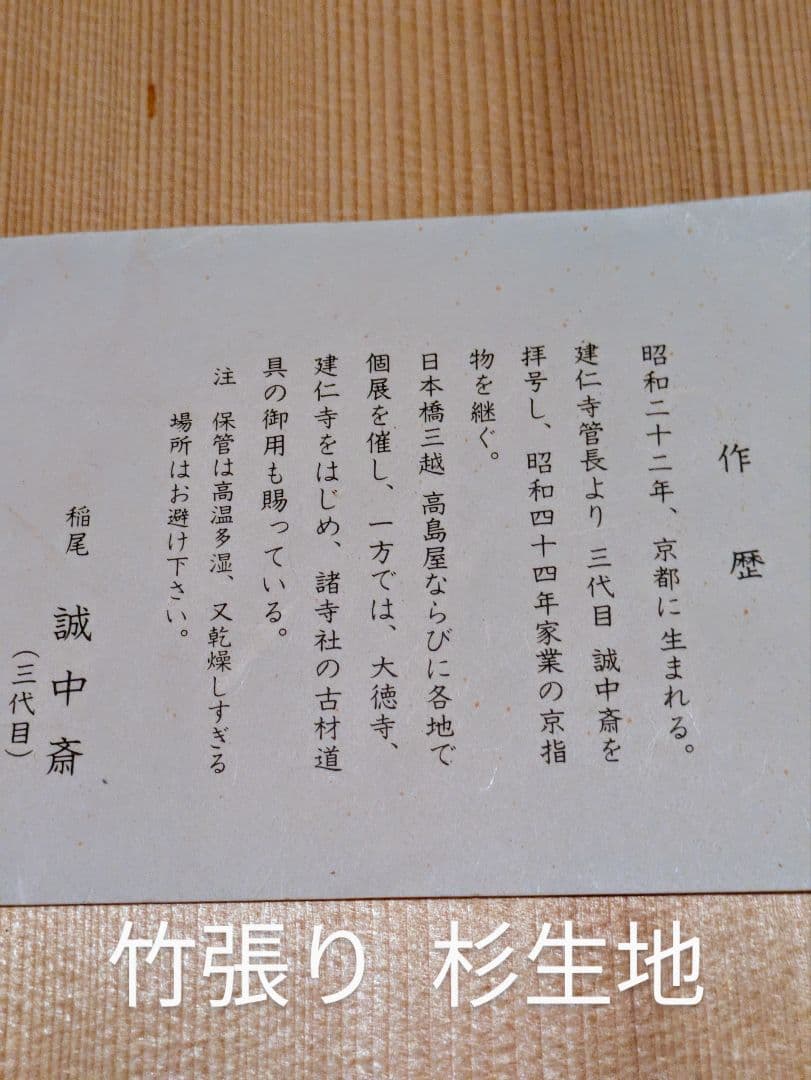 作歴
昭和二十二年、京都に生まれる。
建仁寺管長より 三代目 誠中斎を
拝号し、昭和四十四年家業の京指
物を継ぐ。
日本橋三越 高島屋ならびに各地で
個展を催し、一方では、大徳寺、
建仁寺をはじめ、諸寺社の古材道
具の御用も賜っている。
注 保管は高温多湿、又乾燥しすぎる
場所はお避け下さい。
稲尾 誠中斎
(三代目)
竹張り 杉生地